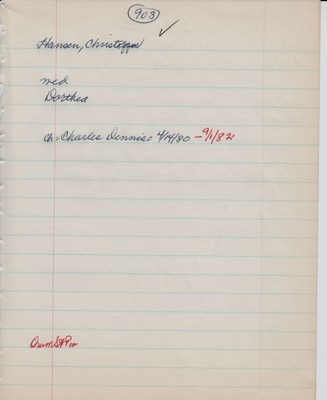 903
Hansen, Christopfer
med
Dorthea
Ch: Charles Dennis: 4/14/80 - 9/1/82